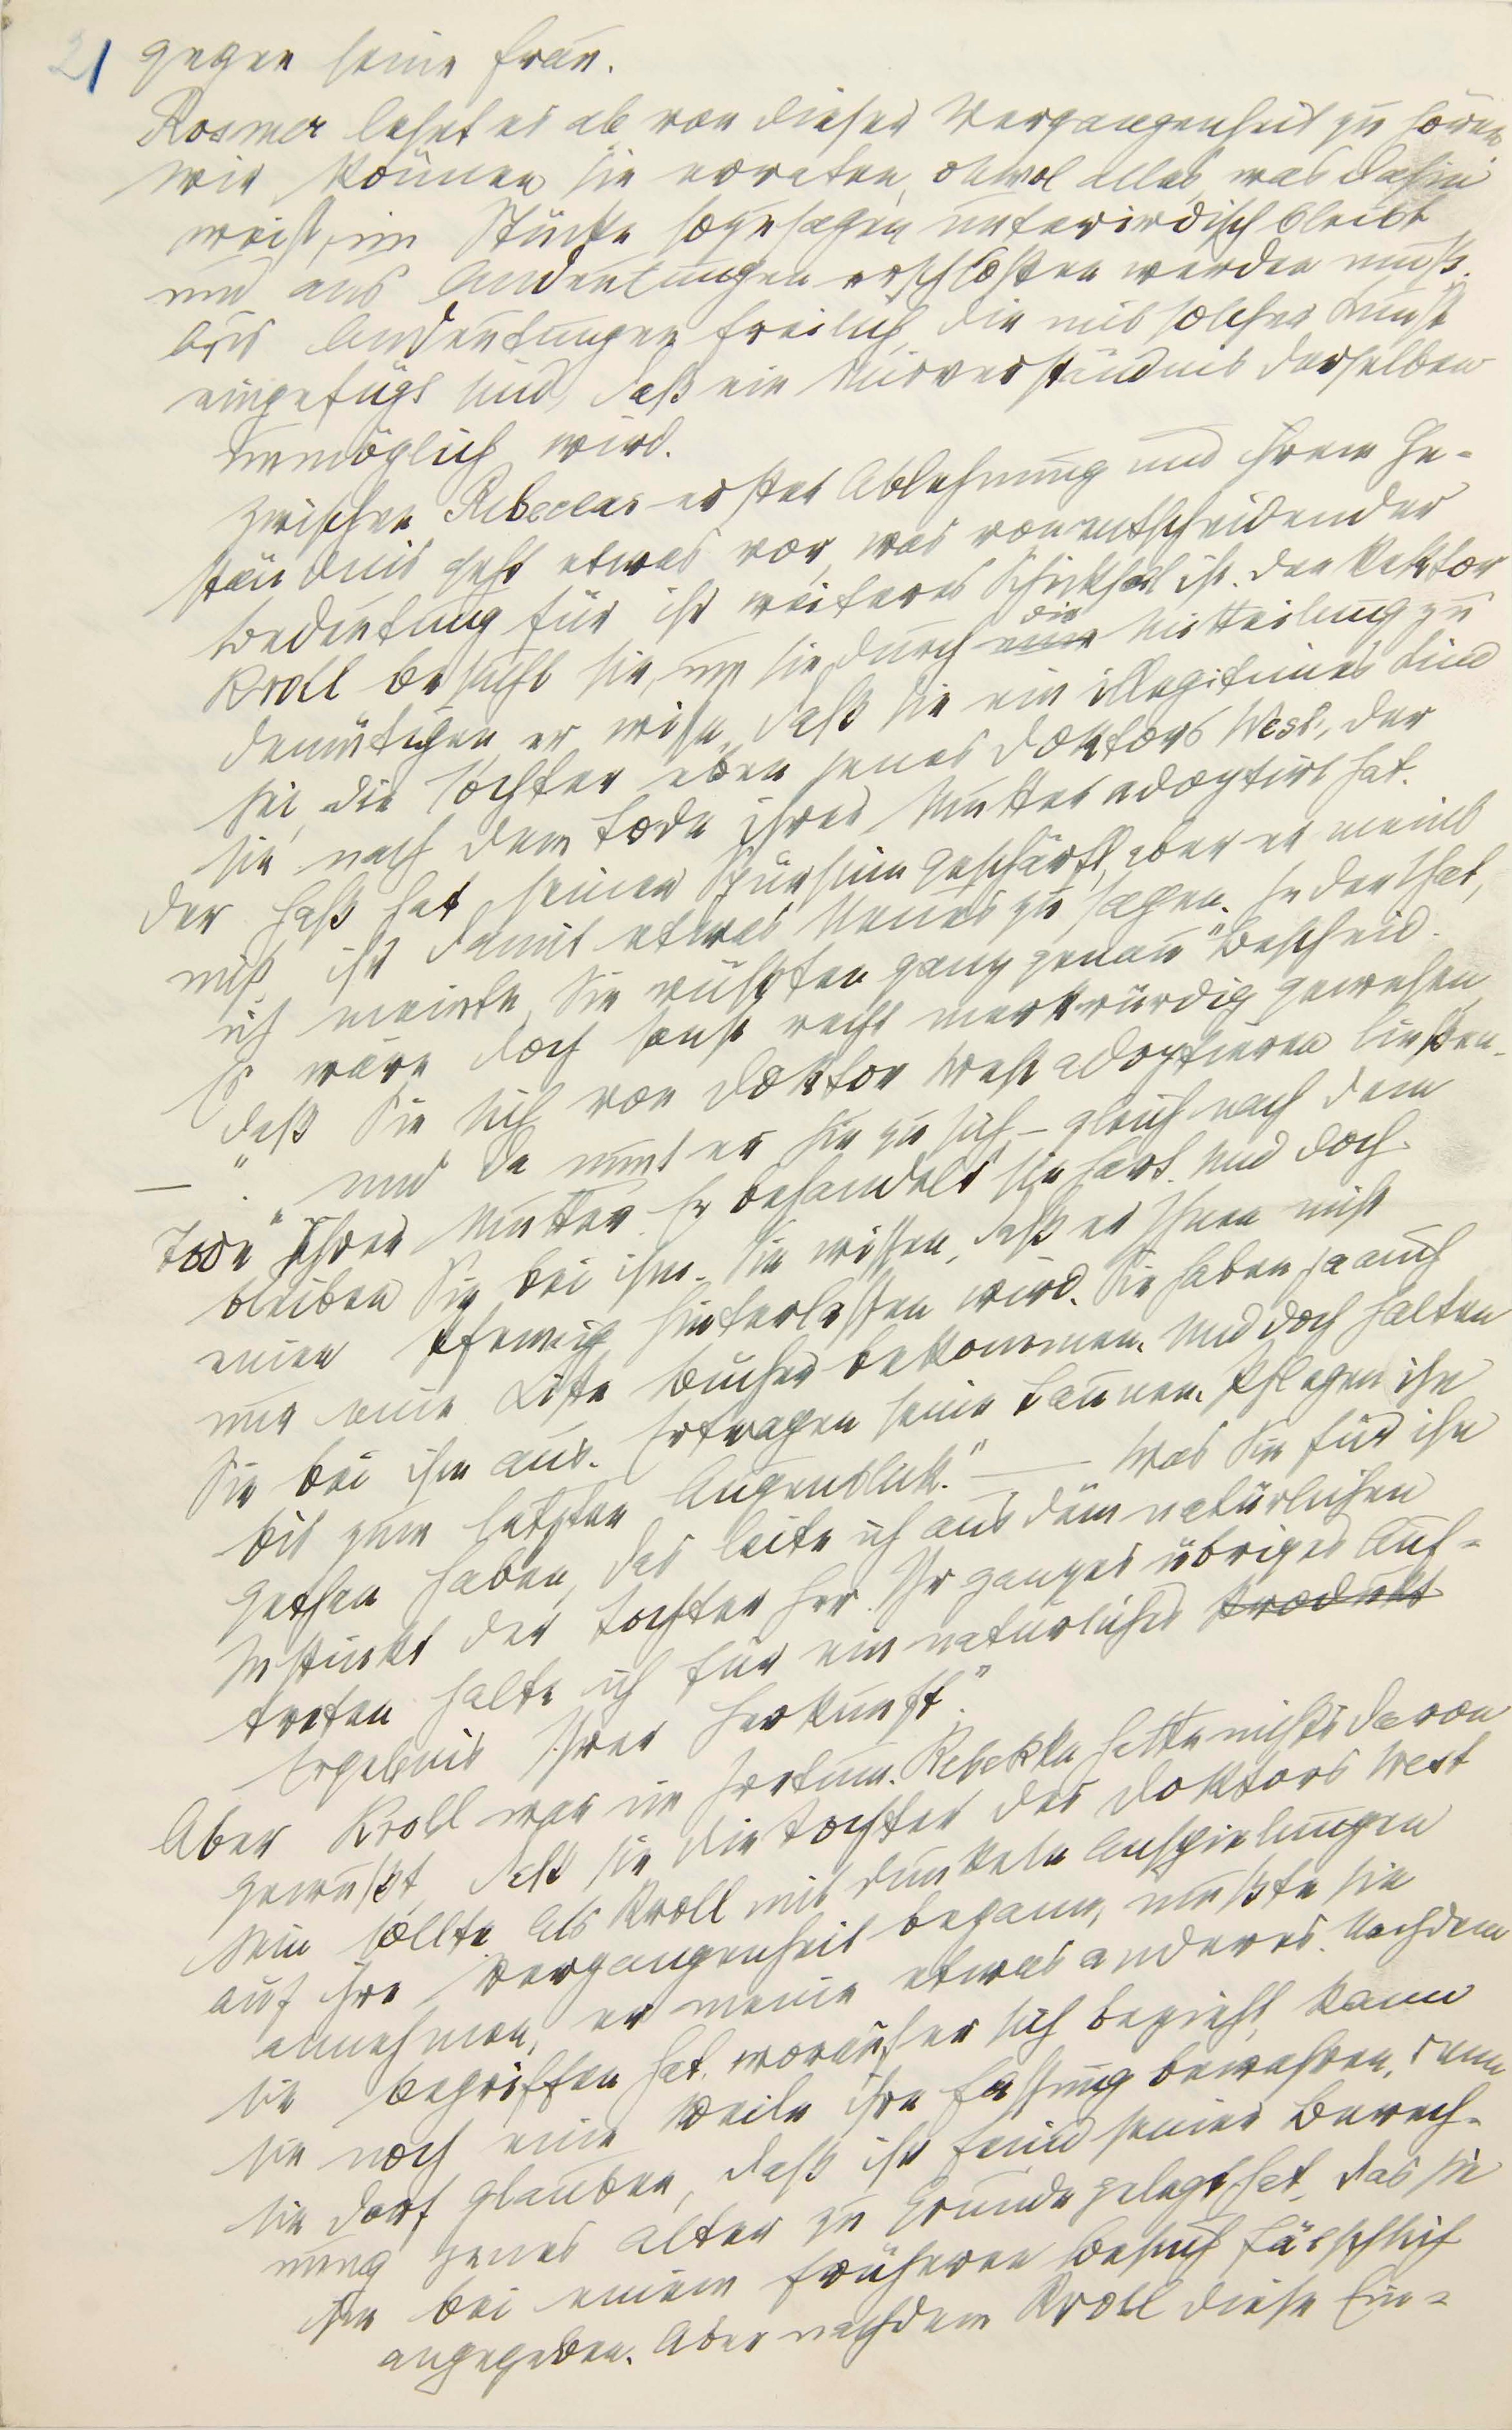 21 gegen seine Frau.
Rosmer lehnt es ab von dieser Vergangenheit zu hören
wir können sie erraten, obwol alles, was dahin
weist, im Stücke sozusagen unterirdisch bleibt
und aus Andeutungen erschlossen werden muß.
Aus Andeutungen freilich, die mit solcher Kunst
eingefügt sind, daß ein Misverständnis derselben
unmöglich wird.
Zwischen Rebeccas erster Ablehnung und ihrem Ge-
ständnis geht etwas vor, was von entscheidender
Bedeutung für ihr weiteres Schicksal ist. Der Rektor
Kroll besucht sie, um sie durch eine die Mitteilung zu
demütigen, er wisse, daß sie ein illegitimes Kind
sei, die Tochter eben jenes Doktors West, der
sie nach dem Tode ihrer Mutter adoptirt hat.
Der Haß hat seinen Spürsinn geschärft, aber er meint
nicht ihr damit etwas Neues zu sagen. „In der That,
ich meinte, Sie wüßten ganz genau Bescheid.
Es wäre doch sonst recht merkwürdig gewesen,
daß Sie sich von Doktor West adoptieren ließen.
— „ „Und da nimt er Sie zu sich – gleich nach dem
Tode Ihrer Mutter. Er behandelt Sie hart. Und doch
bleiben Sie bei ihm. Sie wissen, daß er Ihnen nicht
einen Pfennig hinterlassen wird. Sie haben ja auch
nur eine Kiste Bücher bekommen. Und doch halten
Sie bei ihm aus. Ertragen seine Launen. Pflegen ihn
bis zum letzten Augenblick." — „Was Sie für ihn
gethan haben, das leite ich aus dem natürlichen
Instinkt der Tochter her. Ihr ganzes übriges Auf-
treten halte ich für ein natürliches Produkt
Ergebnis Ihrer Herkunft".
Aber Kroll war im Irrtum. Rebekka hatte nichts davon
gewußt, daß sie die Tochter des Doktors West
sein sollte. Als Kroll mit dunkeln Anspielungen
auf ihre Vergangenheit begann, mußte sie
annehmen, er meine etwas anderes. Nachdem
sie begriffen hat, worauf er sich bezieht, kann
sie noch eine Weile ihre Fassung bewahren, denn
sie darf glauben, daß ihr Feind seiner Berech-
nung jenes Alter zu Grunde gelegt hat, das sie
ihm bei einem früheren Besuch fälschlich
angegeben. Aber nachdem Kroll diese Ein-